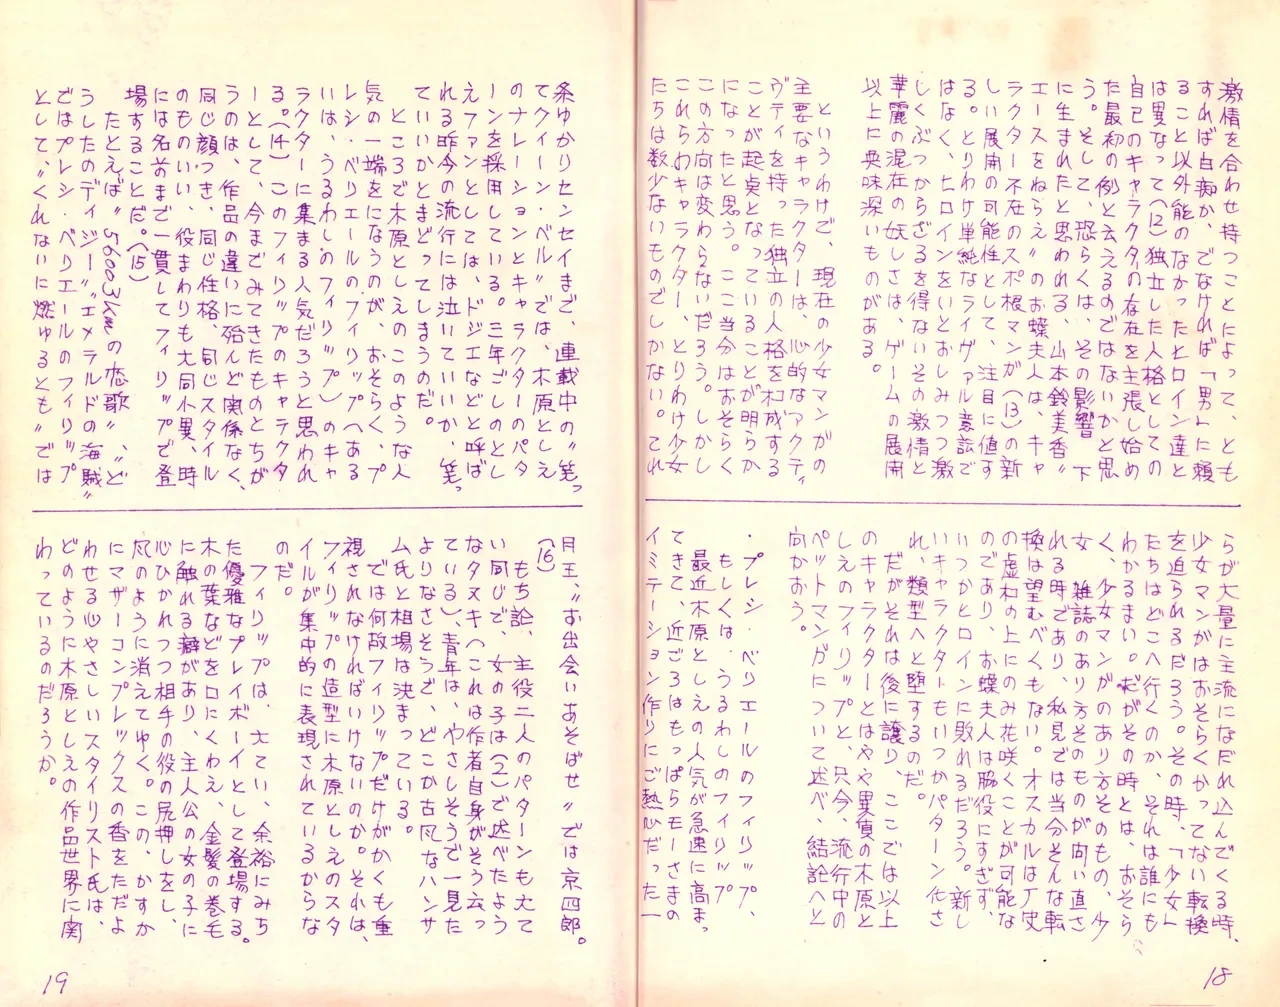 激情を合わせ持つことによって、とも
すれば白痴か、でなければ「男」に頼
ること以外能のなかったヒロイン達と
は異なって(12)独立した人格としての
自己のキャラクタの存在を主張し始め
た最初の例と云えるのではないかと思
う。そして、恐らくは、その影響下
に生まれたと思われる、山本鈴美香〝
エースをねらえ〟のお蝶夫人は、キャ
ラクター不在のスポ根マンガ(13)の新
しい展開の可能性として、注目に値す
る。とりわけ単純なライヴァル意識で
はなく、ヒロインをいとおしみつつ激
しくぶつからざるを得ないその激情と
華麗の混在の妖しさは、ゲームの展開
以上に興味深いものがある。
というわけで、現在の少女マンガの
主要なキャラクターは、心的なアクティ
ヴティを持った独立の人格を和成する
ことが起点となっていることが明らか
になったと思う。ここ当分はおそらく
この方向は変わらないだろう。しかし
これらのキャラクター、とりわけ少女
たちは数少ないものでしかない。てれ
らが大量に主流になだれ込んでくる時、
少女マンガはおそらくかってない転換
を迫られるだろう。その時、「少女」
たちはどこへ行くのか、それは誰にも
わかるまい。だがその時とは、おそら
く、少女マンガのあり方そのもの、少
女雑誌のあり方そのものが向い直さ
れる時であり、私見では当分そんな転
換は望むべくもない。オスカルは歴史
の虚和の上にのみ花咲くことが可能な
のであり、お蝶夫人は脇役にすぎず、
いつかヒロインに敗れるだろう。新し
いキャラクターもいつかパターン化さ
れ、類型へと堕するのだ。
だがそれは後に譲り、ここでは以上
のキャラクターとはやや異質の木原と
しえのフィリップと、只今、流行中の
ペットマンガについて述べ、結論へと
向かおう。
・プレシ・ベリエールのフィリップ、
もしくは、うるわしのフィリップ
最近木原としえの人気が急速に高まっ
てきて、近ごろはもっぱらモーさまの
イミテーション作りにご熱心だった一
18
条ゆかりセンセイまで、連載中の〝笑っ
てクイーン・ベル〟では、木原としえ
のナレーションとキャラクターのパタ
ーンを採用している。三年ごしのとし
えファンとしては、ドジエなどと呼ば
れる昨今の流行には泣いていいか、笑っ
ていいかとまどってしまうのだ。
ところで木原としえのこのような人
気の一端をになうのが、おそらく、プ
レシ・ベリエールのフィリップ(ある
いは、うるわしのフィリップ)のキャ
ラクターに集まる人気だろうと思われ
る。(14)このフィリップのキャラクタ
ーとして、今までみてきたものとちが
うのは、作品の違いに殆んど関係なく、
同じ顔つき、同じ性格、同じスタイル
のものいい、役まわりも大同小異、時
には名前まで一貫してフィリップで登
場することだ。(15)
たとえば〝5600㎞の恋歌〟、ど
うしたのディジー〟〝エメラルドの海賊〟
ではプレシ・ベリエールのフィリップ
として、〝くれないに燃ゆるとも〟では
月王、〝お出会いあそばせ〟では京四郎。
(16)
もち論、主役二人のパターンも大て
い同じで、女の子は(2)で述べたよう
なタヌキ(これは作者自身がそう云っ
ている)、青年は、やさしそうで一見た
よりなさそうで、どこか古風なハンサ
ム氏と相場は決まっている。
では何故フィリップだけがかくも重
視されなければいけないのか。それは、
フィリップの造型に木原としえのスタ
イルが集中的に表現されているからな
のだ。
フィリップは、大てい、余裕にみち
た優雅なプレイボーイとして登場する。
木の葉などを口にくわえ、金髪の巻毛
に触れる癖があり、主人公の女の子に
心ひかれつつ相手の役の尻押しをし、
風のように消えてゆく。この、かすか
にマザーコンプレックスの香をただよ
わせる心やさしいスタイリスト氏は、
どのように木原としえの作品世界に関
わっているのだろうか。
19